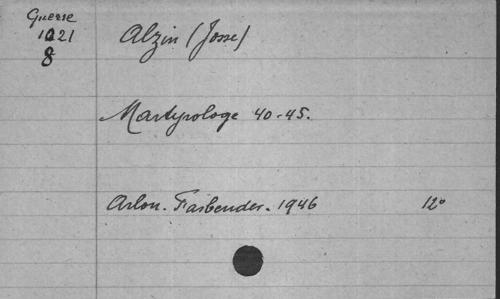 Guerre
1021
8
Alzin (Josse)
Martyrologe 40-45.
Arlon. Fasbender. 1946 12°